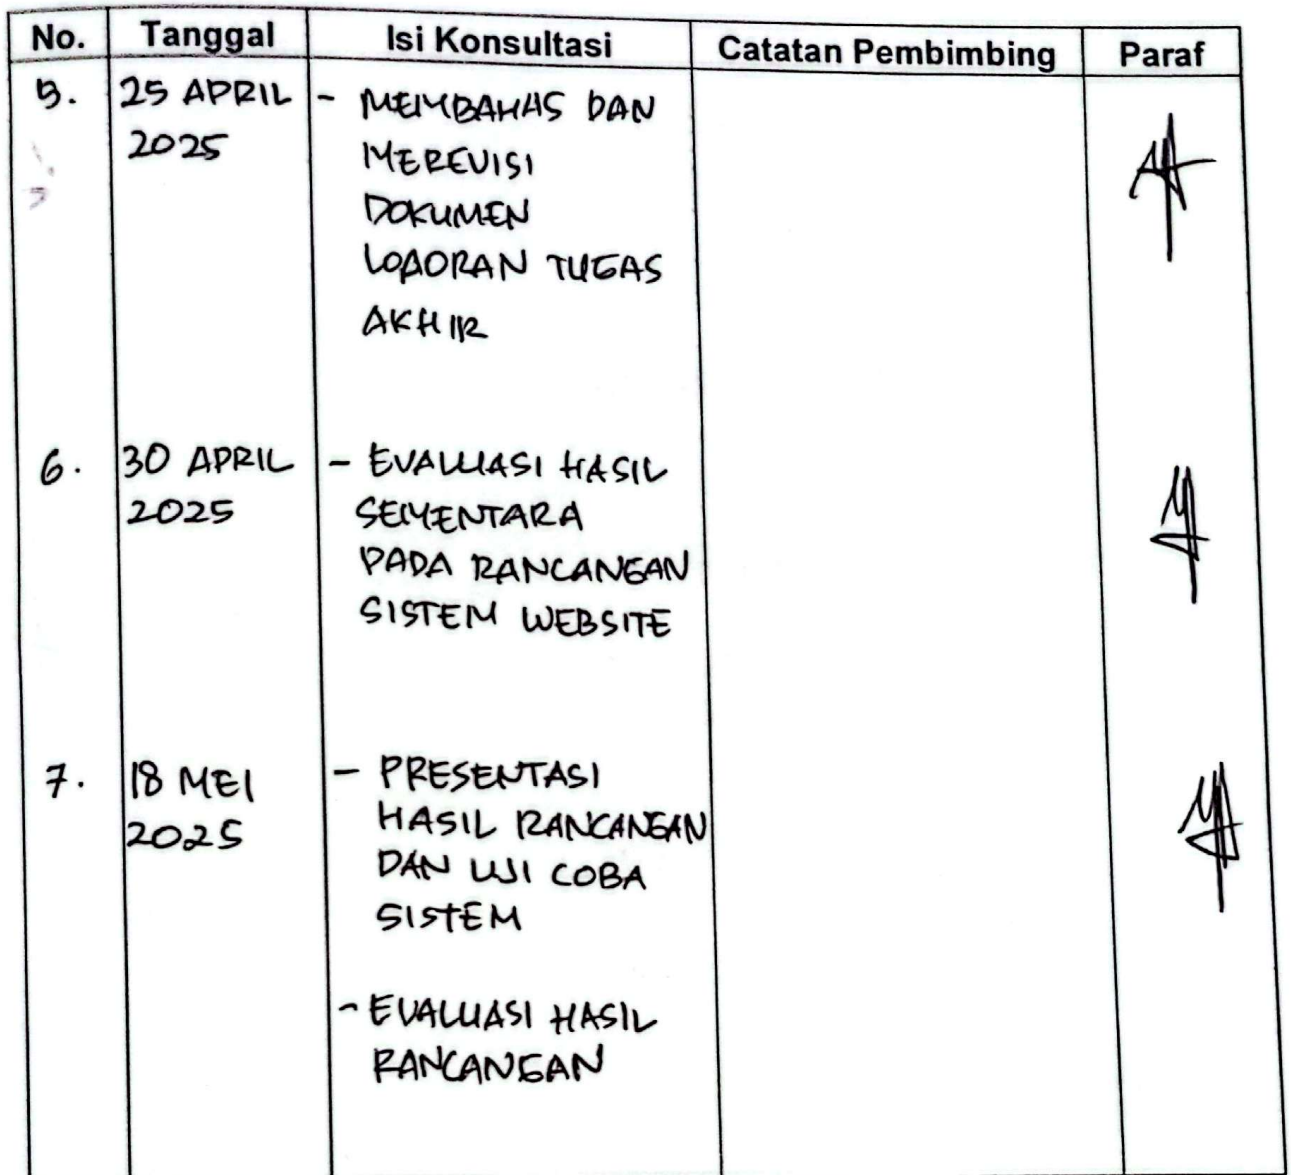 No. Tanggal Isi Konsultasi Catatan Pembimbing Paraf
5. 25 APRIL - MEMBAHAS DAN
2025 MEREVISI
DOKUMEN
LOAORAN TUGAS
AKHIR
6. 30 APRIL - EVALUASI HASIL
2025 SEMENTARA
PADA RANCANGAN
SISTEM WEBSITE
7. 18 MEI - PRESENTASI
2025 HASIL RANCANGAN
DAN UJI COBA
SISTEM
- EVALUASI HASIL
RANCANGAN